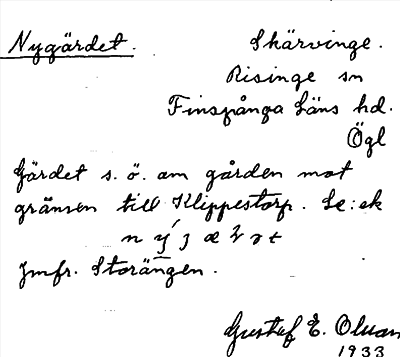 Nygärdet. Skärvinge.
Risinge sn
Finspånga läns hd.
Ögl
Gärdet s. ö. om gården mot
gränsen till Klippestorp. Se: ek
Jmfr. Storängen.
Gustaf E. Olsson
1933